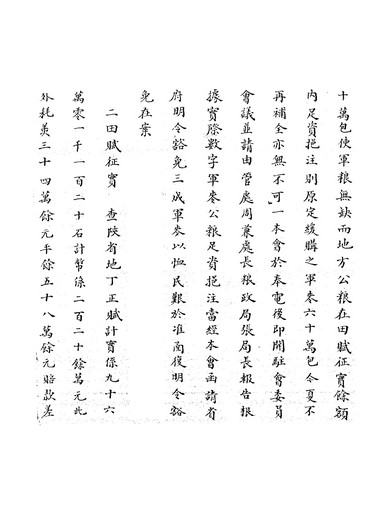 十萬包使軍粮無缺而地方公粮在田賦征實餘額
內足資挹注則原定緩購之軍麥六十萬包今夏不
再補全亦無不可一本會於奉電後即開駐會委員
會議並請由管處周兼處長粮政局張局長報告報
據實際數字軍麥公粮足資挹注當經本會函請省
府明令豁免三成軍麥以恤民艱於准函復明令豁
免在案
二田賦征實　查陝省地丁正賦計實係九十六
萬零一千一百二十石計幣係二百二十餘萬元此
外耗羨三十四萬餘元平餘五十八萬餘元賠款差